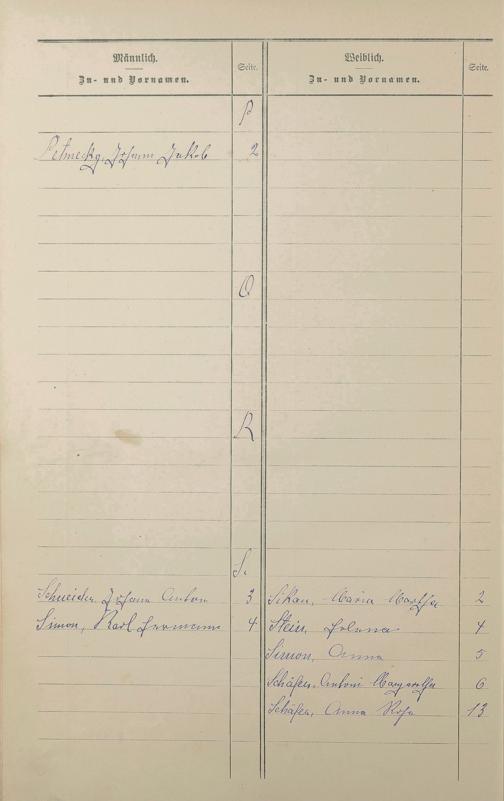 Männlich.
Zu- und Vornamen.
Seite.
Weiblich.
Zu- und Vornamen.
Seite.
P
Johann Jakob 2
Q
R
S.
Schneider Johann Anton 3
Simon, Karl Hermann 4
Maria Martha 2
Stein, Helena 4
Simon, Anna 5
Schäfer, Margaretha 6
Schäfer, Anna Rosa 13